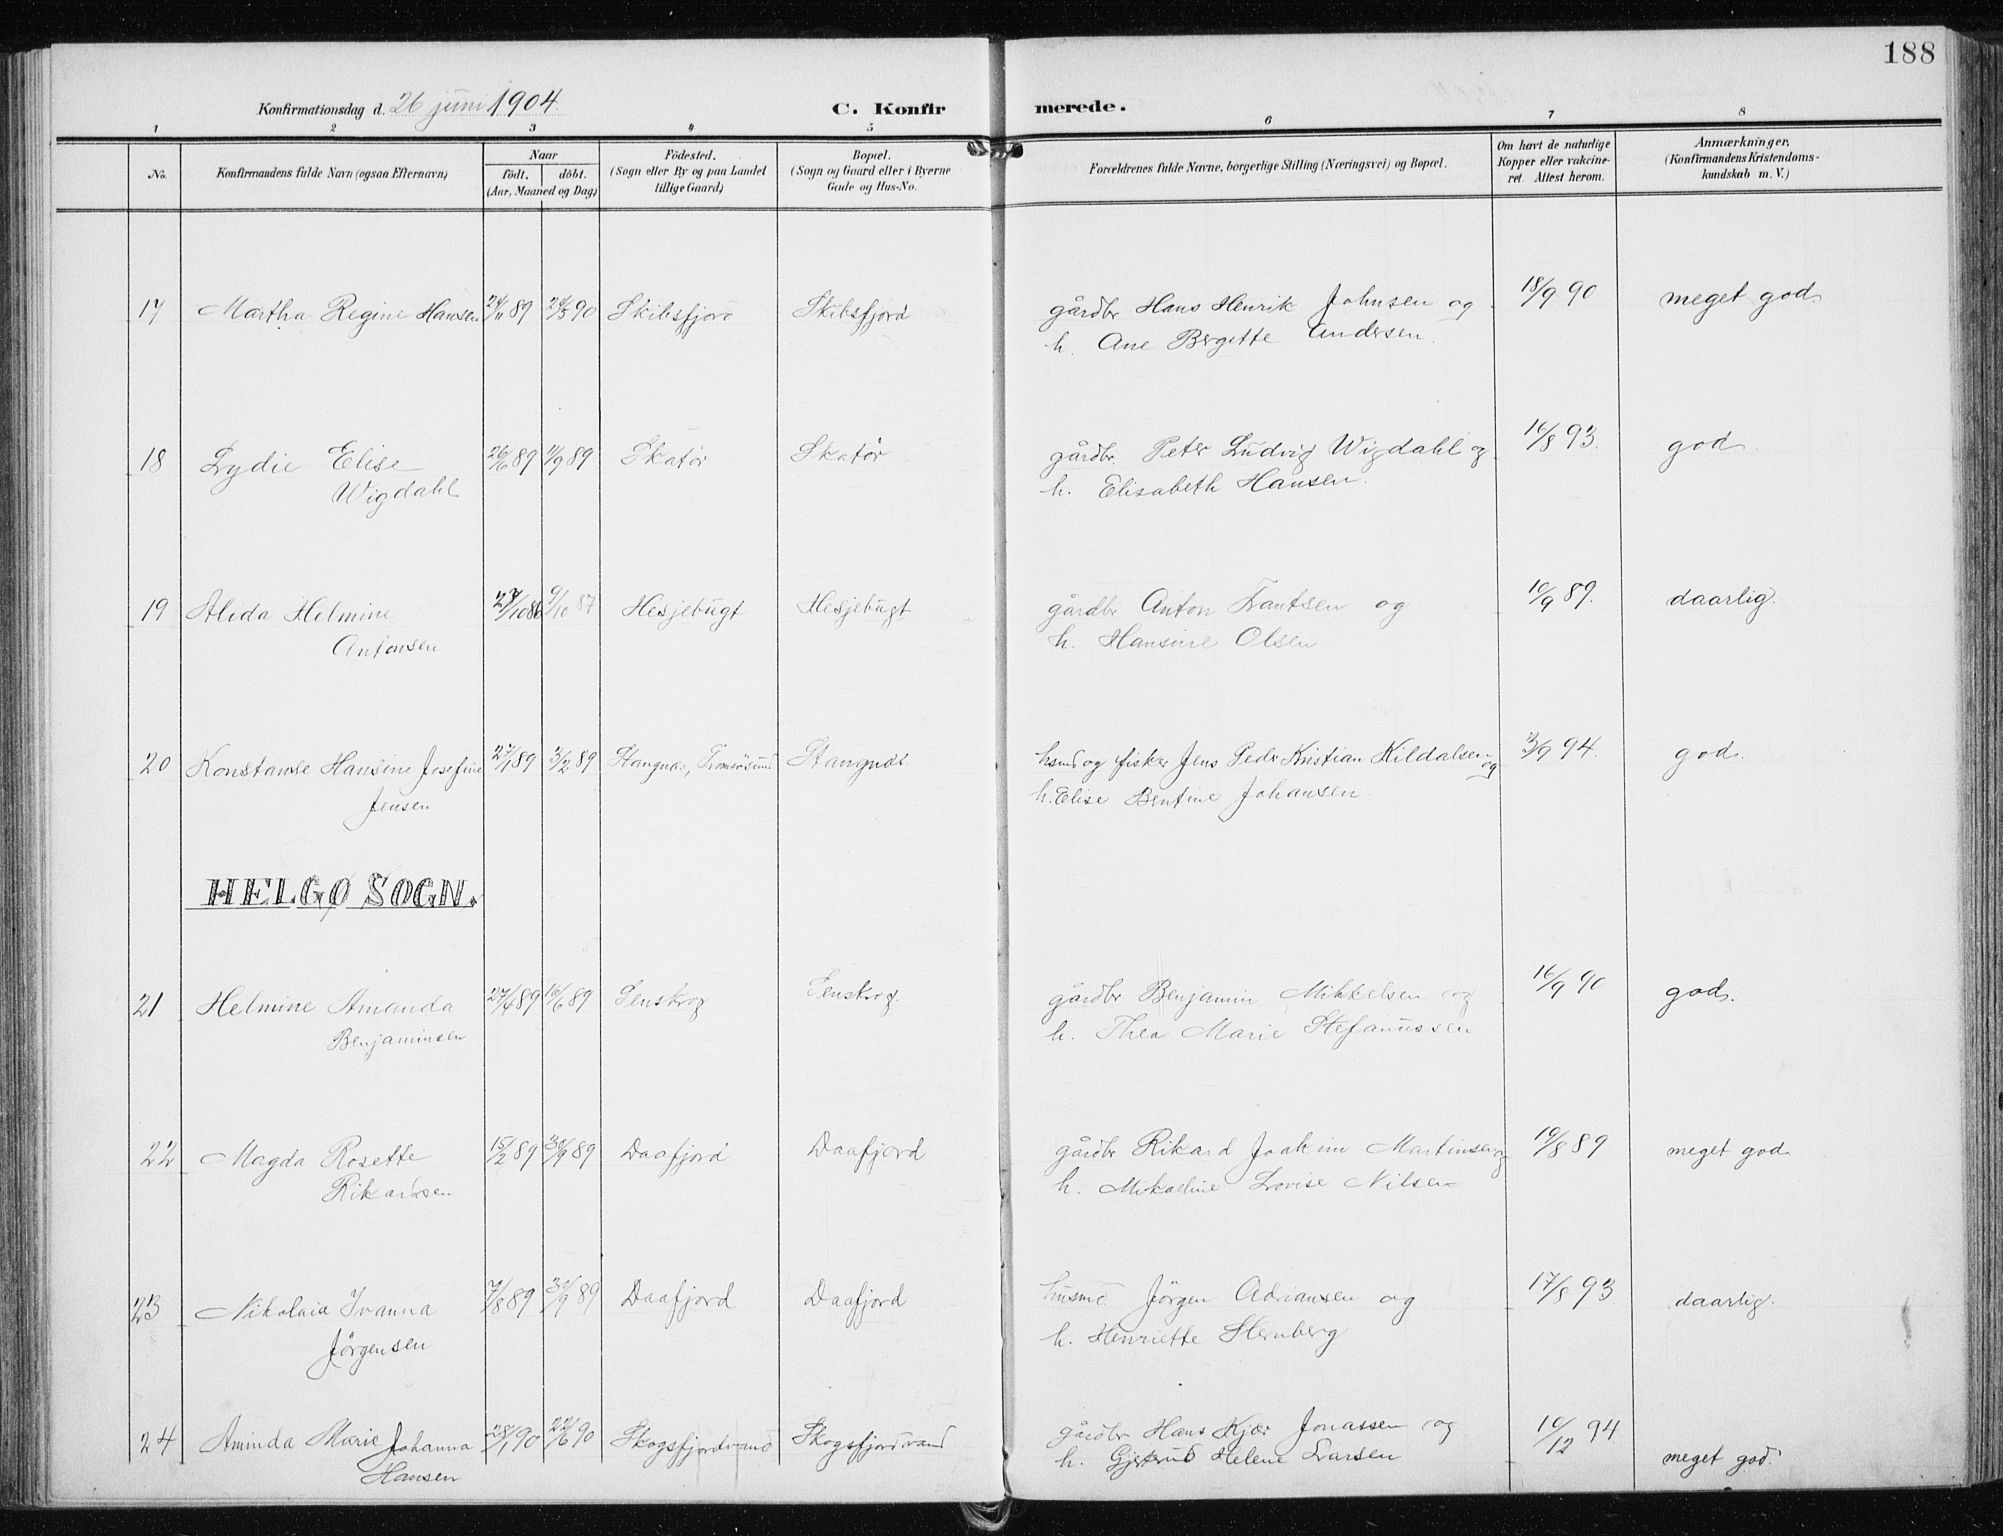 188
Konfirmationsdag d. 26 juni 1904.
C. Konfirmerede.
1 2 3 4 5 6 7 8
No.
Konfirmandens fulde Navn (ogsaa Efternavn)
Naar
födt. döbt.
(Aar, Maaned og Dag)
Födested.
(Sogn eller By og paa Landet
tillige Gaard)
Bopæl.
(Sogn og Gaard eller i Byerne
Gade og Hus-No.
Forældrenes fulde Navne, borgerlige Stilling (Næringsvei) og Bopæl.
Om havt de naturlige
Kopper eller vakcine-
ret. Attest herom.
Anmærkninger.
(Konfirmandens Kristendoms-
kundskab m. V.)
17 Martha Regine Hansen 24/11 89 24/5 90 Skibsfjord Skibsfjord gårdbr Hans Henrik Johnsen og 18/9 90 meget god
h. Ane Bergitte Andersen.
18 Lydie Elise 26/6 89 1/9 89 Skatør Skatør gårdbr. Peter Ludvig Wigdahl og 16/8 93. god.
Wigdahl h. Elisabeth Hansen.
19 Alida Helmine 27/10 86 9/10 87 Hesjebugt Hesjebugt gårdbr Anton Frantsen og 10/9 89. daarlig.
Antonsen h. Hansine Olsen
20 Konstanse Hansine Josefine 27/1 89 3/2 89 Stangnæs, Tromsösund Stangnæs husmd og fisker Jens Peder Kristian Kildalsen og 3/9 94. god.
Jensen h. Elise Bentine Johansen.
HELGØ SOGN.
21 Helmine Amanda 27/4 89 16/6 89 Lenskog Lenskog. gårdbr Benjamin Mikkelsen og 16/9 90 god.
Benjaminsen h. Thea Marie Stefanussen
22 Magda Rosette 15/2 89 30/9 89 Daafjord Daafjord gårdbr Rikard Joakim Martinsen og 19/8 89 meget god
Rikardsen h. Mikaeline Lovise Nilsen
23 Nikolaia Ivanna 7/8 89 30/9 89 Daafjord Daafjord husmd Jörgen Adriansen og 17/8 93 daarlig.
Jörgensen h. Henriette Sternberg
24 Aminda Marie Johanna 28/1 90 22/6 90 Skogsfjordvand Skogsfjordvand gårdbr Hans Kjær Jonassen og 10/12 94 meget god.
Hansen h. Gjertrud Helene Larsen